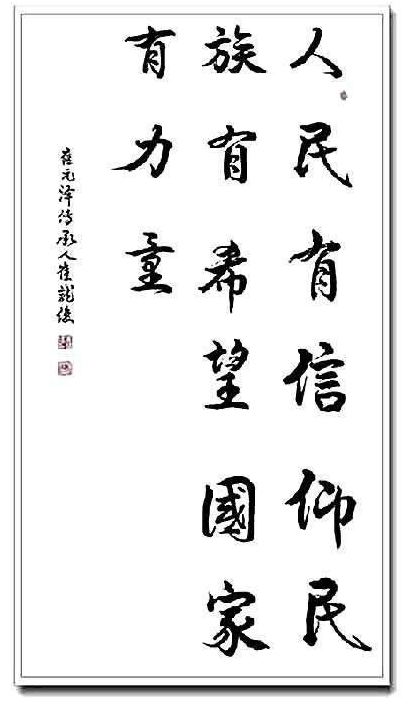 人民有信仰民
族有希望國家
有力量
崔元泽传承人崔龍